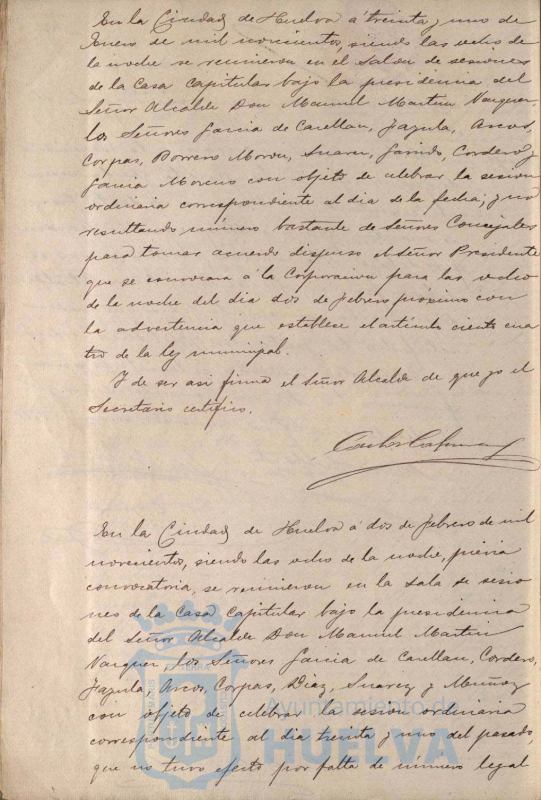 En la Ciudad de Huelva á treinta y uno de
Enero de mil novecientos, siendo las ocho de
la noche se reunieron en el Salon de sesiones
de la Casa Capitular bajo la presidencia del
Señor Alcalde Don Manuel Martin Vazquez,
los Señores Garcia de Casellan, Jazula, Arcos,
Corpas, Borrero Moron, Suarez, Garrido, Cordero y
Garcia Moreno con objeto de celebrar la sesion
ordinaria correspondiente al dia de la fecha; y no
resultando número bastante de Señores Concejales
para tomar acuerdo dispuso el Señor Presidente
que se convocara á la Corporacion para las ocho
de la noche del dia dos de febrero próximo con
la advertencia que establece el artículo ciento cua
tro de la ley municipal.
Y de ser asi firma el Señor Alcalde de que yo el
Secretario certifico.
En la Ciudad de Huelva á dos de febrero de mil
novecientos, siendo las ocho de la noche, prévia
convocatoria, se reunieron en la sala de sesio
nes de la Casa Capitular bajo la presidencia
del Señor Alcalde Don Manuel Martin
Vazquez, los Señores Garcia de Casellan, Cordero,
Jazula, Arcos, Corpas, Diaz, Suarez y Muñoz
con objeto de celebrar la sesion ordinaria
correspondiente al dia treinta y uno del pasado,
que no tuvo efecto por falta de número legal
Ayuntamiento de
HUELVA